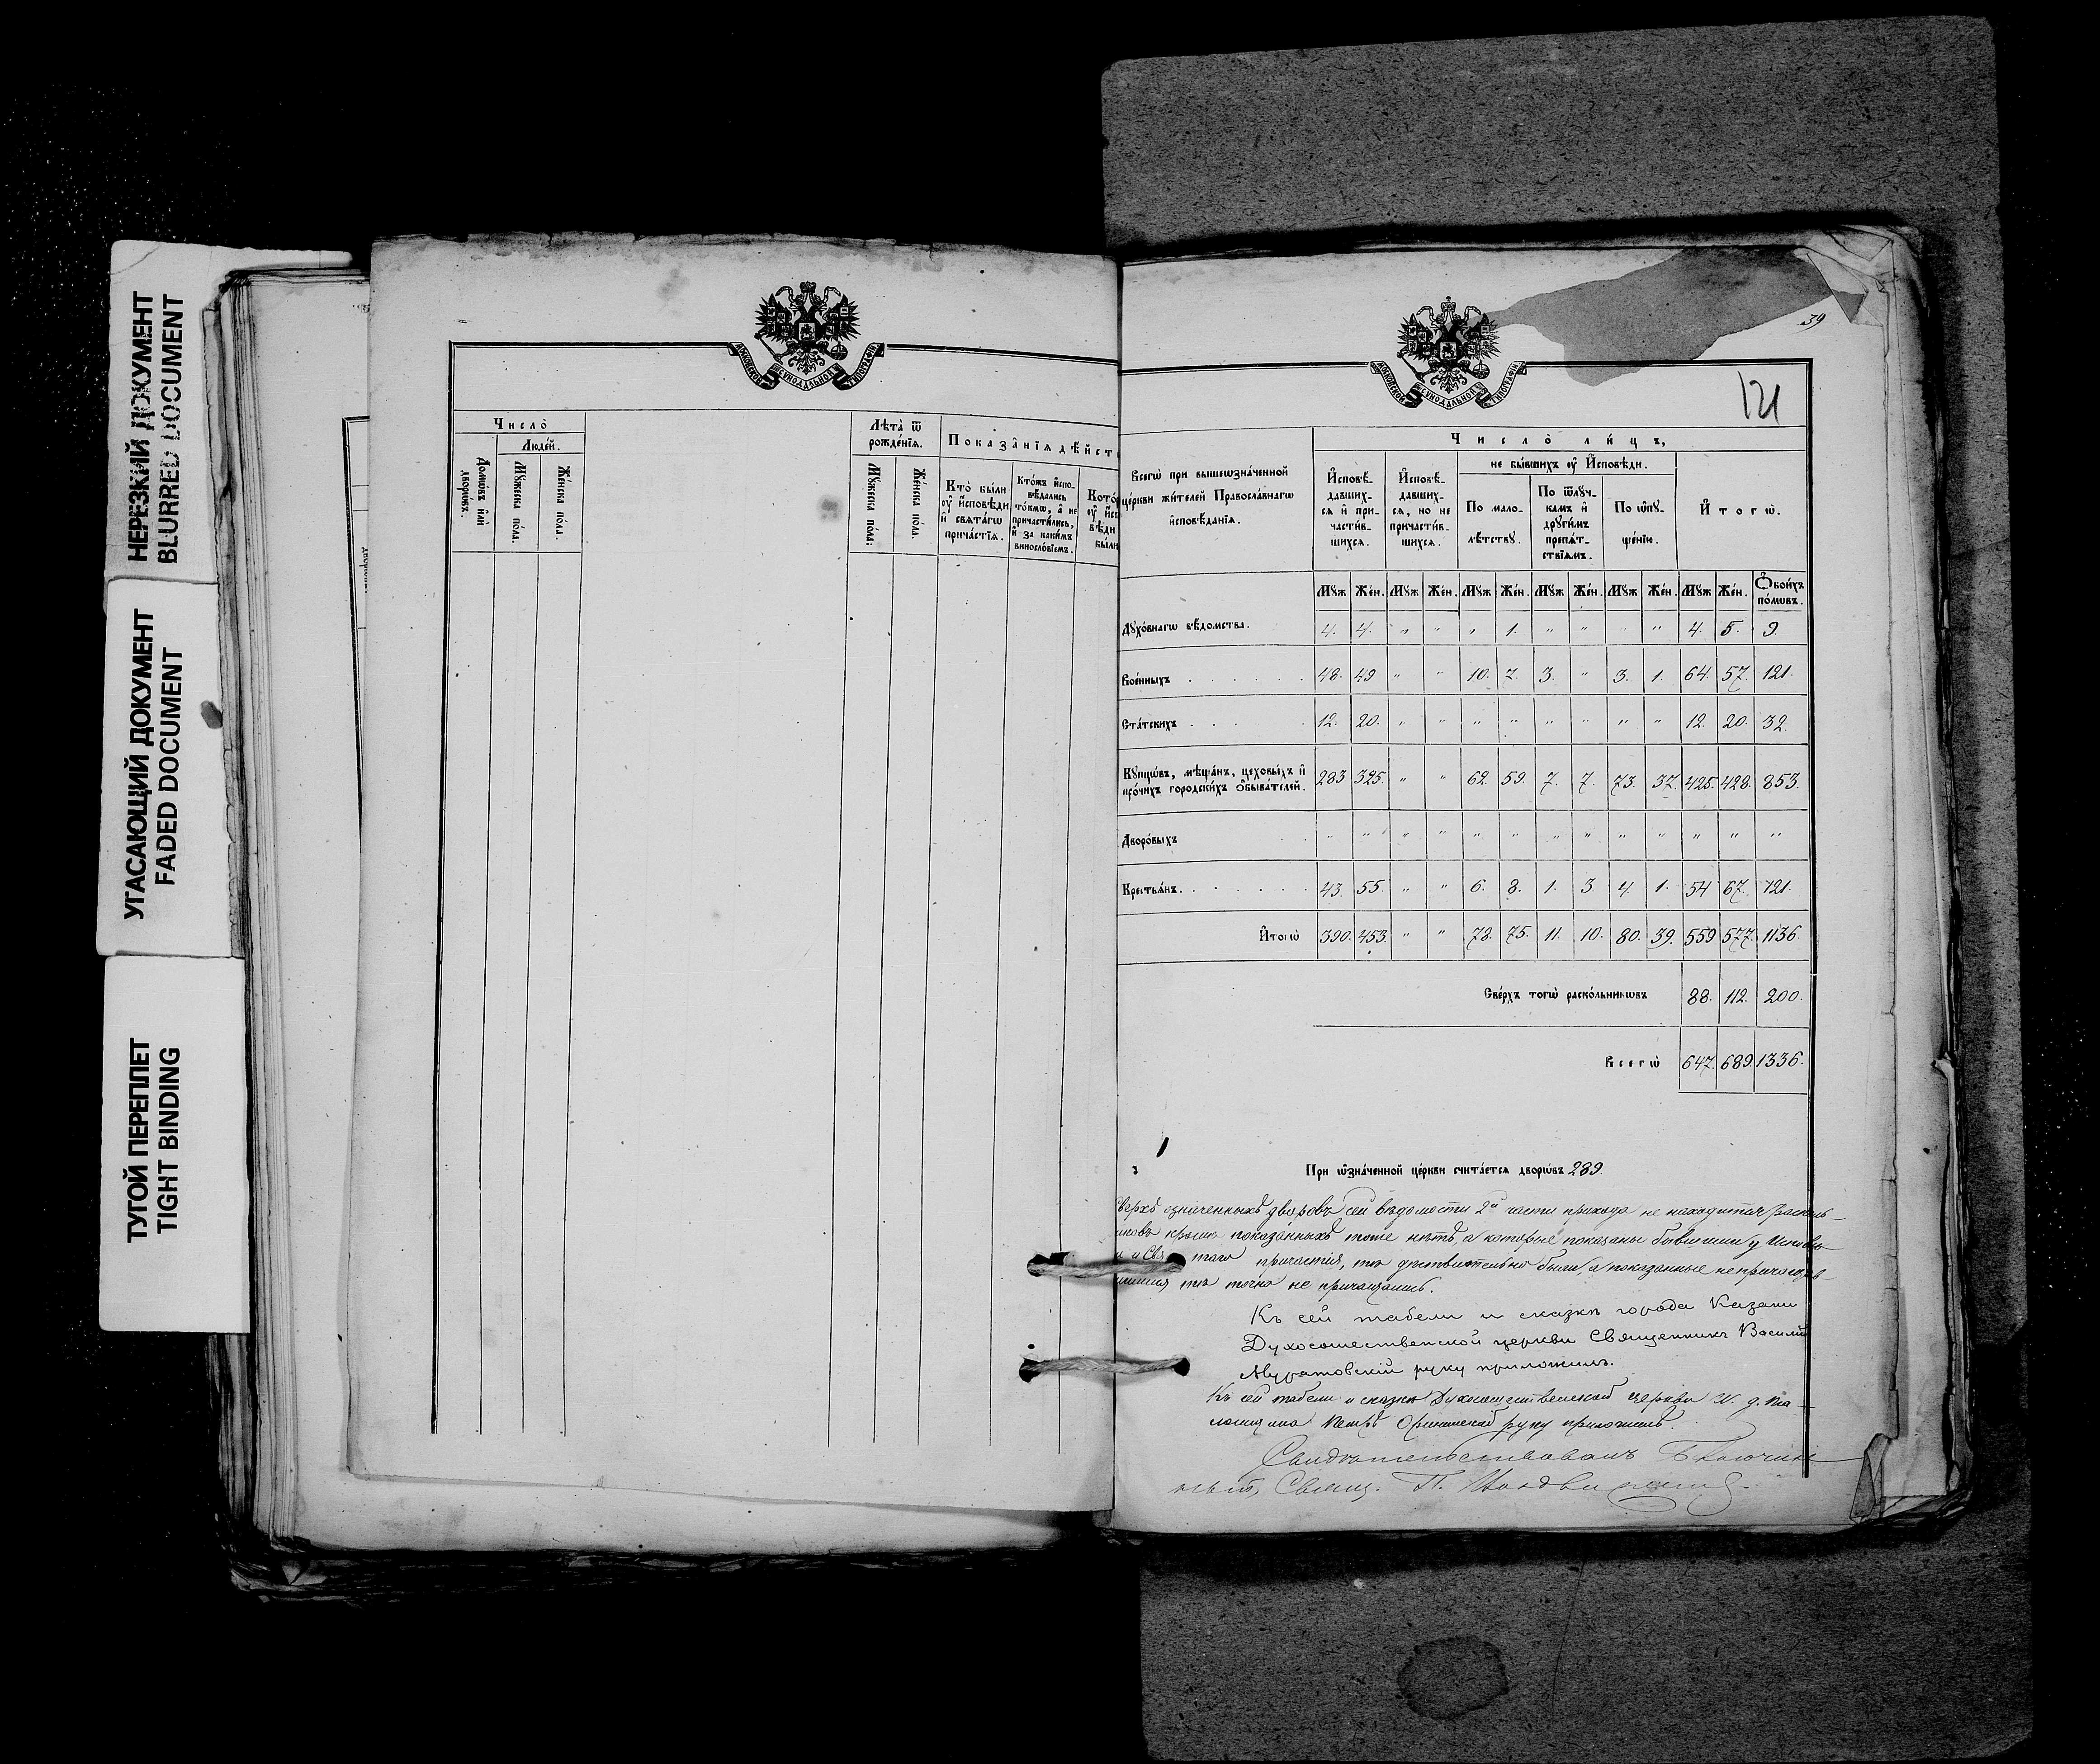 НЕРЕЗКИЙ ДОКУМЕНТ
BLURRED DOCUMENT
УГАСАЮЩИЙ ДОКУМЕНТ
FADED DOCUMENT
ТУГОЙ ПЕРЕПЛЕТ
TIGHT BINDING
МОСКОВСКОЙ СѴНОДАЛЬНОЙ ТИПОГРАФІИ
Число̀
Людéй.
Домѡ́въ и҆лѝ дворѡ́въ.
Мꙋ́жеска пóла.
Жéнска пóла.
Лѣ́та ѿ рождéнїѧ.
Мꙋ́жеска пóла.
Жéнска пóла.
Показа̂нїѧ дѣ́йст
Кто̀ бы́ли
ᲂу҆ и҆сповѣди
и҆ свѧта́гѡ
прича́стїѧ.
Кто́жъ и҆спо-
вѣ́дались
то́кмѡ, а҆ не
причасти́лись,
и҆ за каки́мъ
винословїемъ.
Кото́
ᲂу҆ и҆сп
вѣди
были
МОСКОВСКОЙ СѴНОДАЛЬНОЙ ТИПОГРАФІИ
39
121
Всегѡ̀ при вышеѡзна́ченной
це́ркви жи́телей Правосла́внагѡ
и҆сповѣ́данїѧ.
Число̀ ли́цъ,
И҆сповѣ́-
давших-
сѧ и҆ при-
части́в-
шихсѧ.
И҆сповѣ́-
давших-
сѧ, но не
причасти́в-
шихсѧ.
не бы́вшихъ ᲂу҆ И҆сповѣди.
По мало-
лѣ́тствꙋ.
По ѿлꙋ́ч-
камъ и҆
дрꙋги́мъ
препѧ́т-
ствїѧмъ.
По ѡ҆пꙋ-
ще́нїю.
И҆тогѡ̀.
Мꙋж Же́н. Мꙋж Же́н. Мꙋж Же́н. Мꙋж Же́н. Мꙋж Же́н. Мꙋж Же́н. Ѻ҆бои́хъ по́лѡвъ.
Дꙋхо́внагѡ вѣ́домства. 4. 4. " " " 1. " " " " 4. 5. 9.
Вое́нныхъ 48. 49 " " 10. 7. 3. " 3. 1. 64. 57. 121.
Ста́тскихъ 12. 20. " " " " " " " " 12. 20. 32.
Кꙋпцѡ́въ, мѣща́нъ, цеховы́хъ и҆
про́чихъ городски́хъ ѻ҆быва́телей. 283 325. " " 62. 59. 7. 7. 73. 37. 425. 428. 853.
Дворо́выхъ " " " " " " " " " " " " "
Крестьѧ́нъ. 43. 55. " " 6. 8. 1. 3 4. 1. 54 67. 121.
И҆тогѡ̀ 390. 453. " " 78. 75. 11. 10. 80. 39. 559 577. 1136.
Све́рхъ тогѡ̀ раско́льникѡвъ 88. 112. 200.
Всегѡ̀ 647. 689. 1336.
При ѡ҆зна́ченной це́ркви счита́етсѧ дворѡ́въ 289.
верхъ означенныхъ дворовъ сей вѣдомости 2й части прихода не находится расколь-
никовъ кромѣ показанныхъ тоже нѣтъ, а которые показаны бывшими у Исповѣ-
и Свя таго причастія, тѣ дѣйствительно были, а показанные непричастив-
шимися тѣ точно не причащались.
Къ сей табели и сказкѣ города Казани
Духосошественской церкви Священникъ Василій
Муратовскій руку приложилъ.
Къ сей табели и сказкѣ Духосошественской церкви И. д. Пса-
ломщика Петръ руку приложилъ.
Свидѣтельствовалъ Благочин-
ный, Свящ. П.